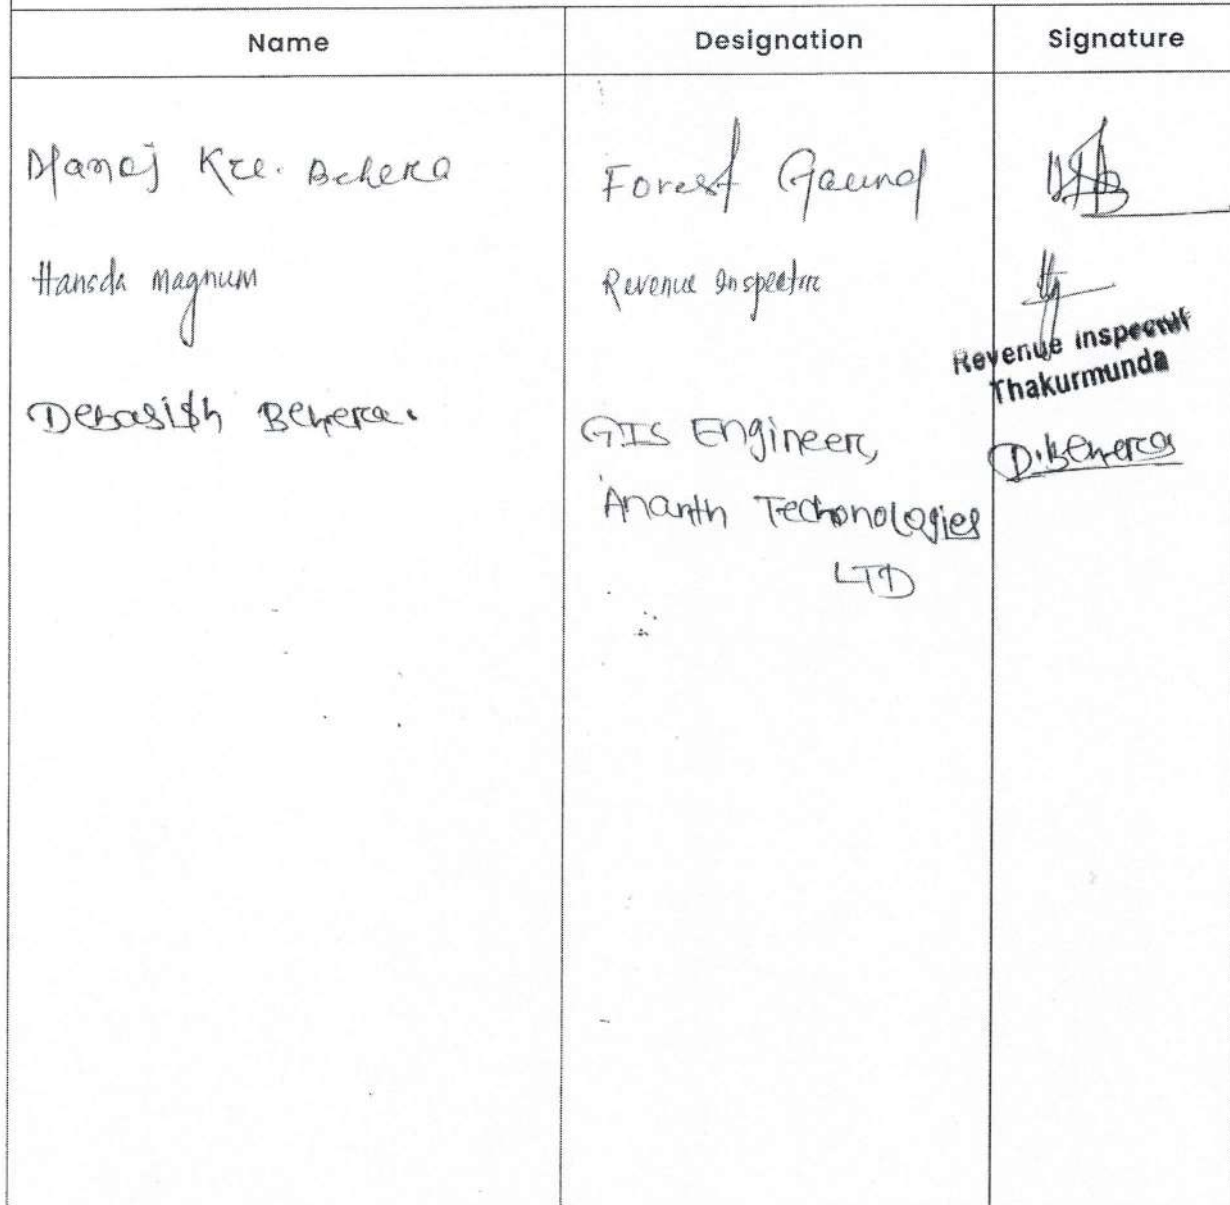 Name Designation Signature
Manoj Kr. Behera Forest Gaurd
Hansda Magnum Revenue Inspector
Revenue Inspector
Thakurmunda
Debasish Behera. GIS Engineer, D.Behera
Ananth Techonologies
LTD